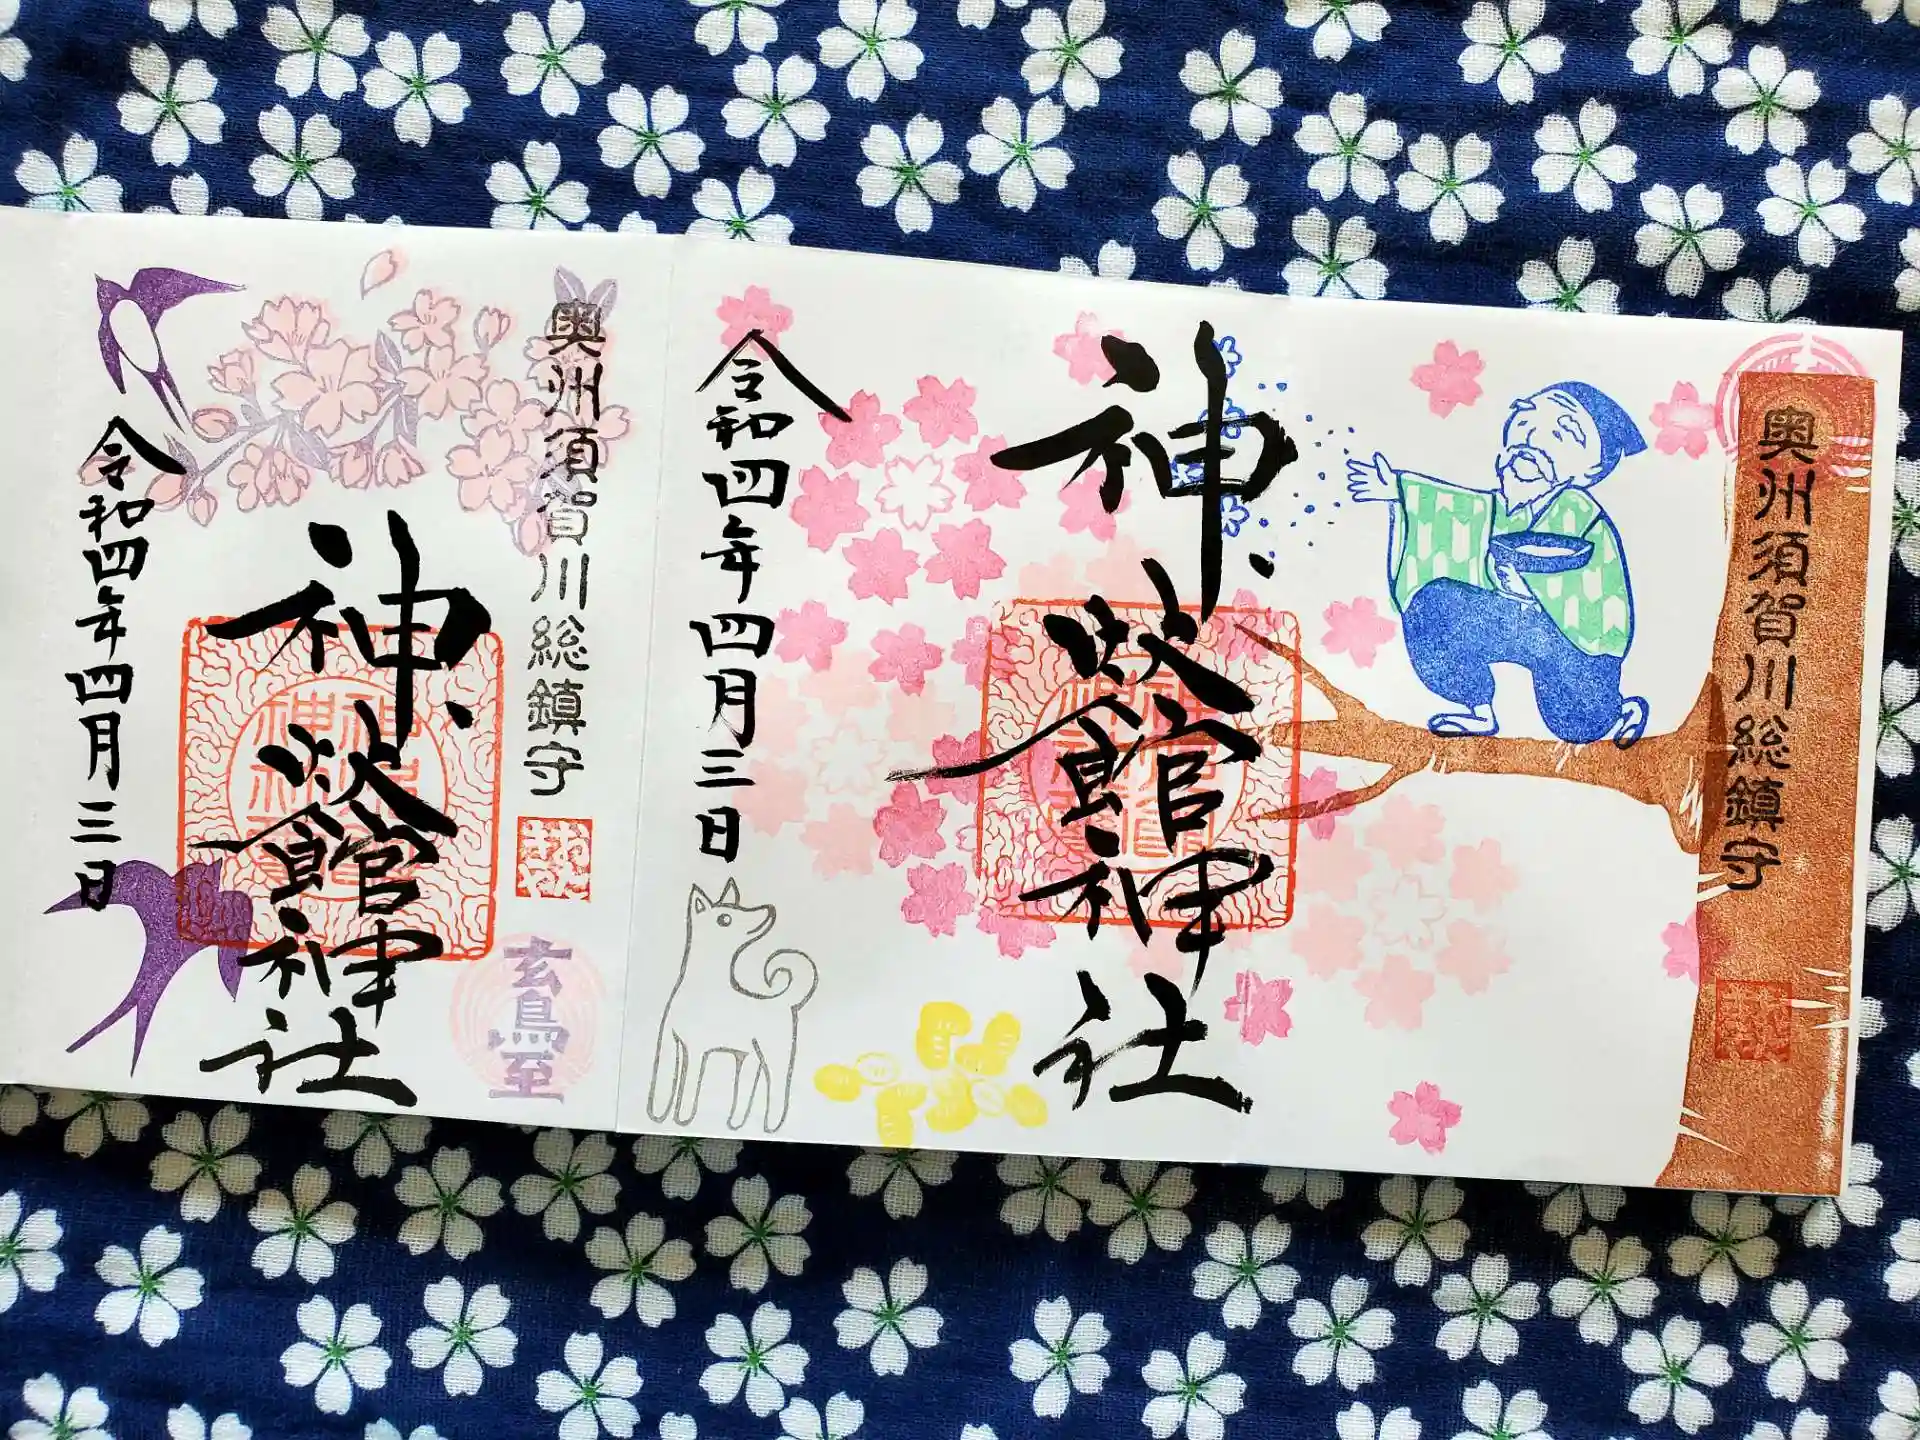 奥州須賀川総鎮守
神炊館神社
令和四年四月三日
奥州須賀川総鎮守
玄鳥至
神炊館神社
令和四年四月三日